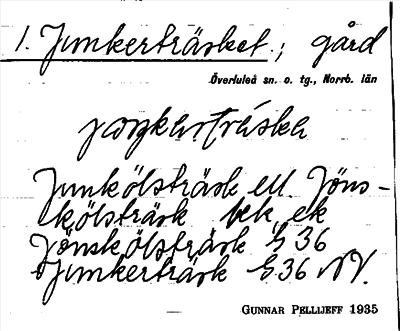 1. Junkerträsket; gård
Överluleå sn. o. tg., Norrb. län
Junkölsträsk ell. Jöns-
kölsträsk bek ek
Jönskölsträsk G 36
Junkerträsk G 36 NV.
GUNNAR PELLIJEFF 1935